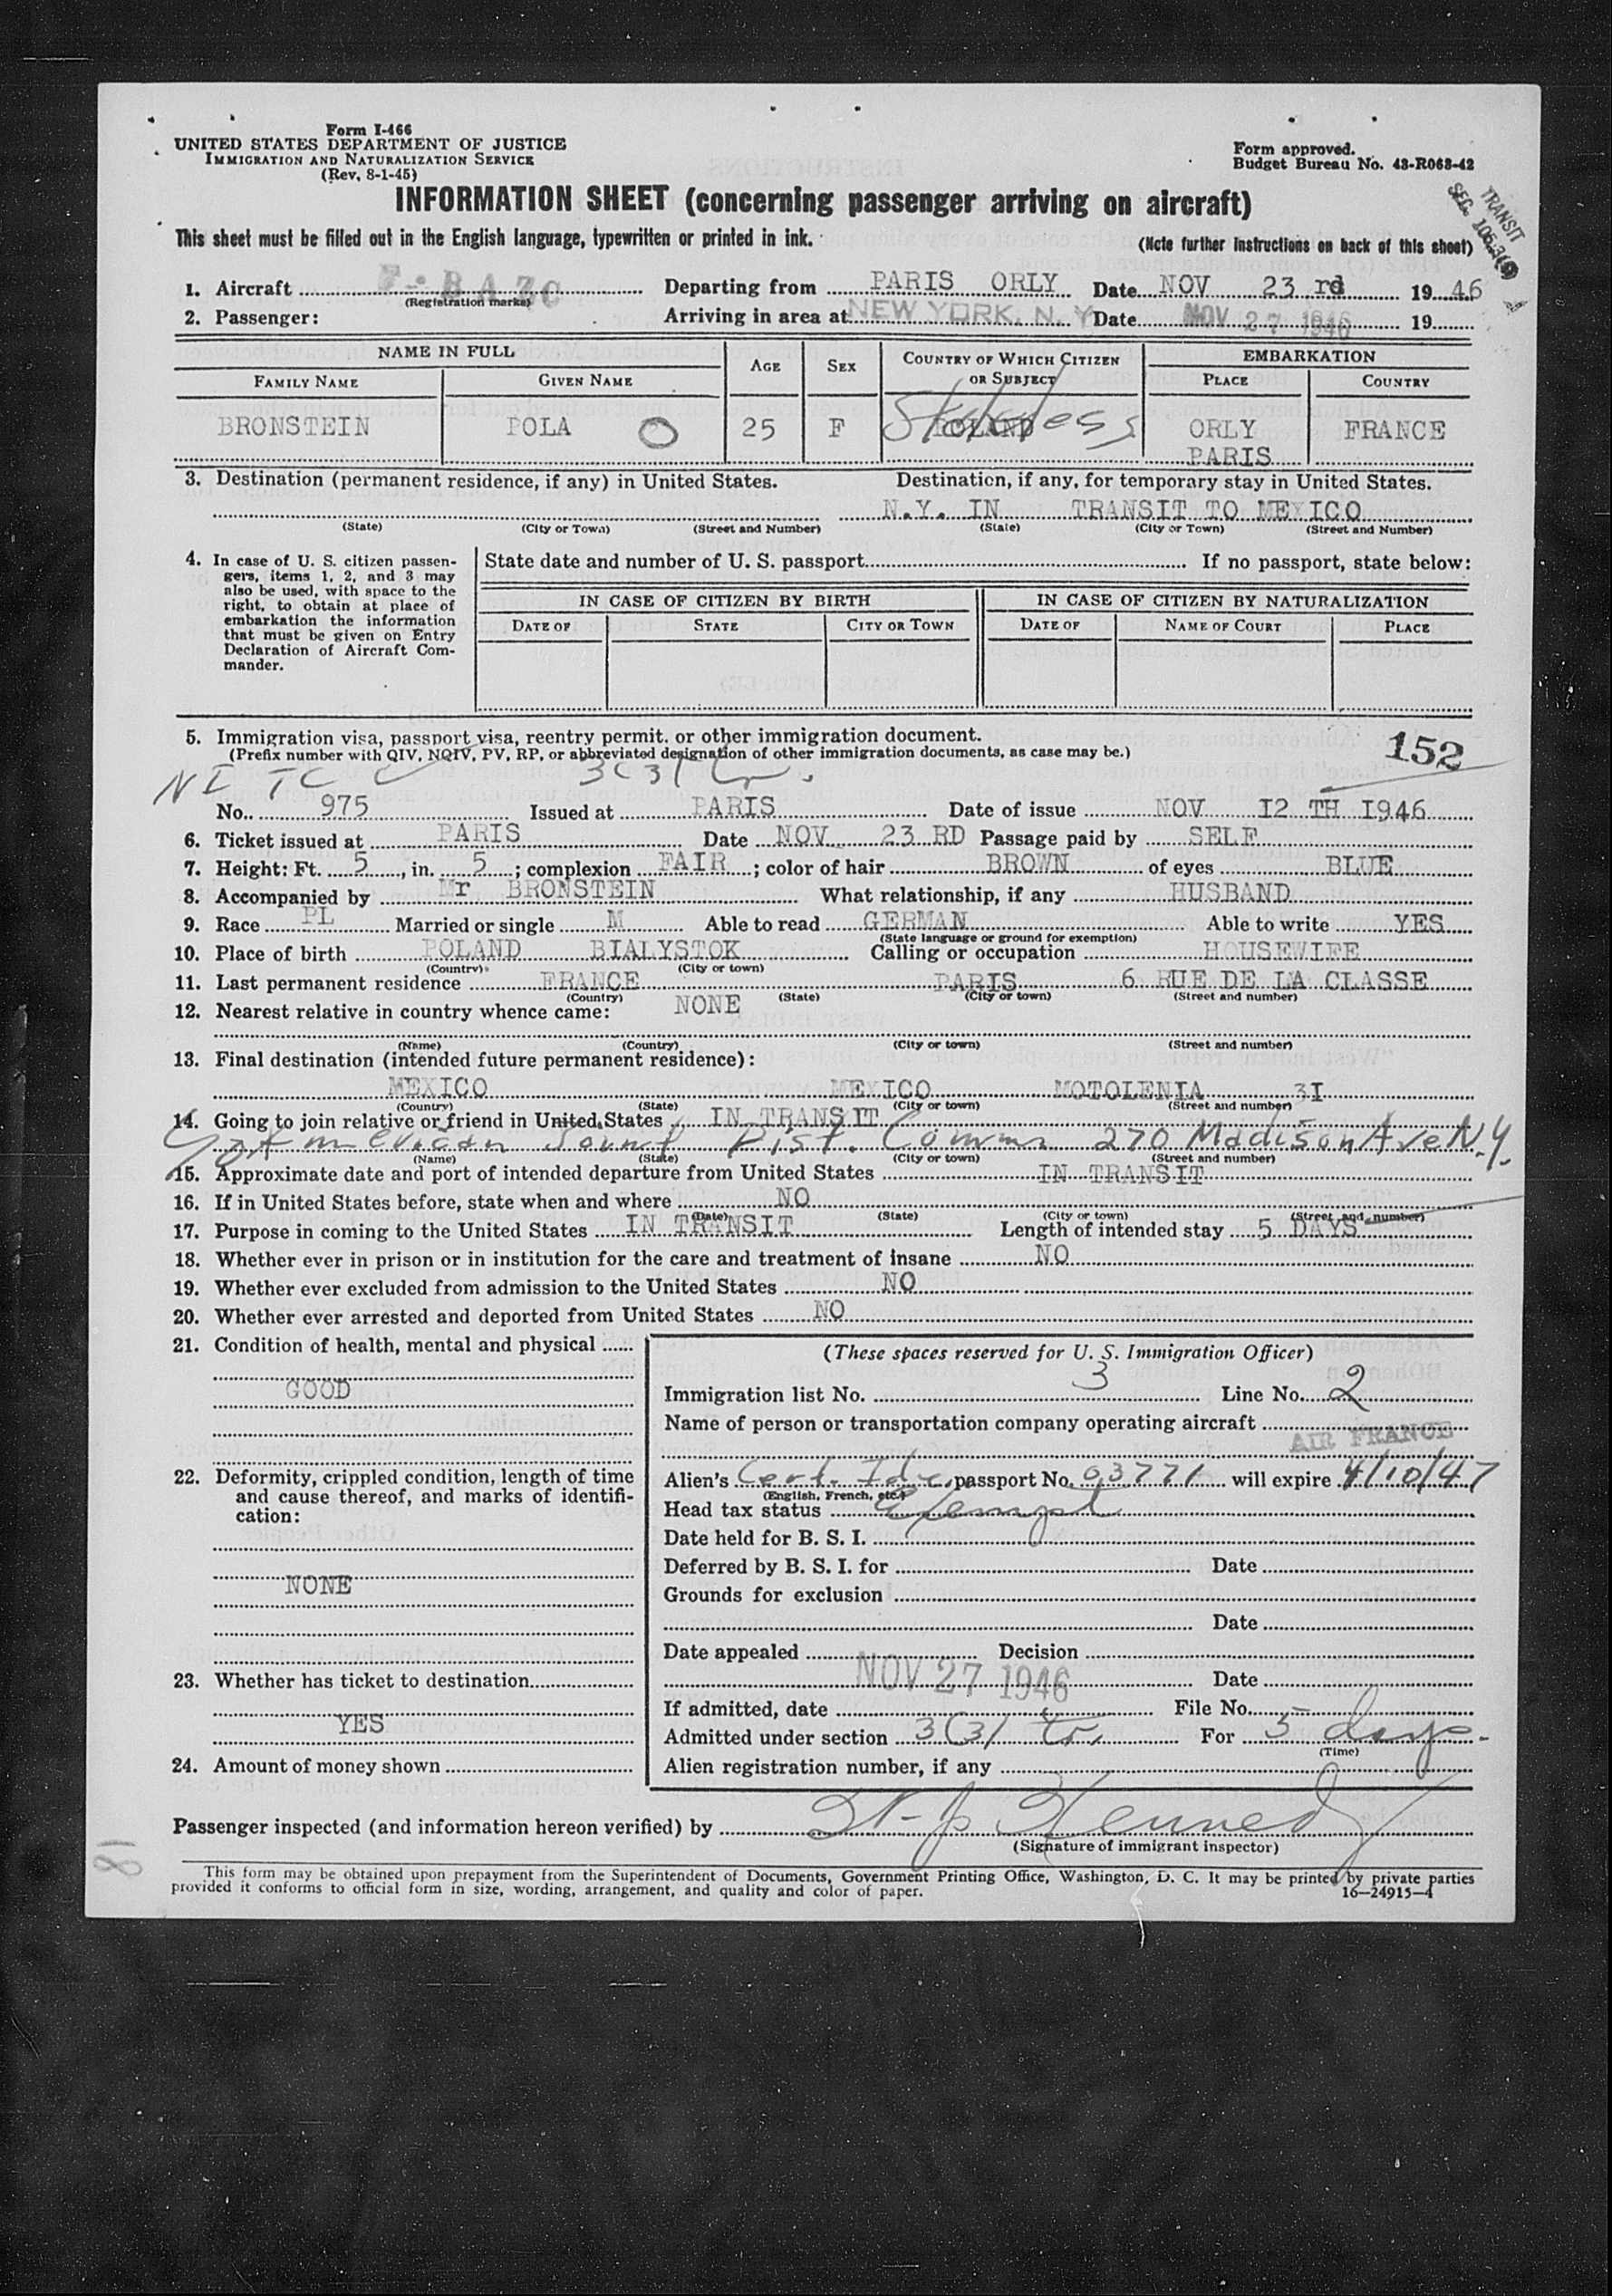 Form I-466
UNITED STATES DEPARTMENT OF JUSTICE
IMMIGRATION AND NATURALIZATION SERVICE
(Rev. 8-1-45)
Form approved.
Budget Bureau No. 43-R063-42
INFORMATION SHEET (concerning passenger arriving on aircraft)
TRANSIT
SEC.
This sheet must be filled out in the English language, typewritten or printed in ink.
(Note further instructions on back of this sheet)
1. Aircraft F-BAZC Departing from PARIS ORLY Date NOV 23 rd 1946
(Registration marks)
2. Passenger: Arriving in area at NEW YORK, N. Y. Date NOV 27 1946 19
NAME IN FULL AGE SEX COUNTRY OF WHICH CITIZEN OR SUBJECT EMBARKATION
FAMILY NAME GIVEN NAME PLACE COUNTRY
BRONSTEIN POLA O 25 F POLAND Stateless ORLY FRANCE
PARIS
3. Destination (permanent residence, if any) in United States. Destination, if any, for temporary stay in United States.
N.Y. IN TRANSIT TO MEXICO
(State) (City or Town) (Street and Number) (State) (City or Town) (Street and Number)
4. In case of U. S. citizen passengers, items 1, 2, and 3 may also be used, with space to the right, to obtain at place of embarkation the information that must be given on Entry Declaration of Aircraft Commander.
State date and number of U. S. passport If no passport, state below:
IN CASE OF CITIZEN BY BIRTH IN CASE OF CITIZEN BY NATURALIZATION
DATE OF STATE CITY OR TOWN DATE OF NAME OF COURT PLACE
5. Immigration visa, passport visa, reentry permit, or other immigration document.
(Prefix number with QIV, NQIV, PV, RP, or abbreviated designation of other immigration documents, as case may be.)
152
NI TC 3(3)
No. 975 Issued at PARIS Date of issue NOV I2 TH I946
6. Ticket issued at PARIS Date NOV 23 RD Passage paid by SELF
7. Height: Ft. 5, in. 5; complexion FAIR; color of hair BROWN of eyes BLUE
8. Accompanied by Mr BRONSTEIN What relationship, if any HUSBAND
9. Race PL Married or single M Able to read GERMAN Able to write YES
(State language or ground for exemption)
10. Place of birth POLAND BIALYSTOK Calling or occupation HOUSEWIFE
(Country) (City or town)
11. Last permanent residence FRANCE PARIS 6 RUE DE LA CLASSE
(Country) (State) (City or town) (Street and number)
12. Nearest relative in country whence came: NONE
(Name) (Country) (City or town) (Street and number)
13. Final destination (intended future permanent residence):
MEXICO MEXICO MOTOLENIA 3I
(Country) (State) (City or town) (Street and number)
14. Going to join relative or friend in United States IN TRANSIT
American Joint Dist. Comm 270 Madison Ave N.Y.
(Name) (State) (City or town) (Street and number)
15. Approximate date and port of intended departure from United States IN TRANSIT
16. If in United States before, state when and where NO
(Date) (State) (City or town) (Street and number)
17. Purpose in coming to the United States IN TRANSIT Length of intended stay 5 DAYS
18. Whether ever in prison or in institution for the care and treatment of insane NO
19. Whether ever excluded from admission to the United States NO
20. Whether ever arrested and deported from United States NO
21. Condition of health, mental and physical
GOOD
22. Deformity, crippled condition, length of time and cause thereof, and marks of identification:
NONE
23. Whether has ticket to destination
YES
24. Amount of money shown
(These spaces reserved for U. S. Immigration Officer)
Immigration list No. 3 Line No. 2
Name of person or transportation company operating aircraft
AIR FRANCE
Alien's Cert. Ide. passport No. 03771 will expire 4/10/47
(English, French, etc.)
Head tax status Exempt
Date held for B. S. I.
Deferred by B. S. I. for Date
Grounds for exclusion
Date
Date appealed Decision
NOV 27 1946 Date
If admitted, date File No.
Admitted under section 3(3) tr. For 5 days
(Time)
Alien registration number, if any
Passenger inspected (and information hereon verified) by Kennedy
(Signature of immigrant inspector)
18
This form may be obtained upon prepayment from the Superintendent of Documents, Government Printing Office, Washington, D. C. It may be printed by private parties
provided it conforms to official form in size, wording, arrangement, and quality and color of paper.
16—24915-4